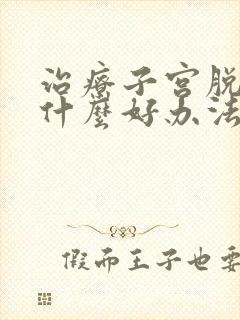 治療子宮脱
什麼好办法
假而王子也要